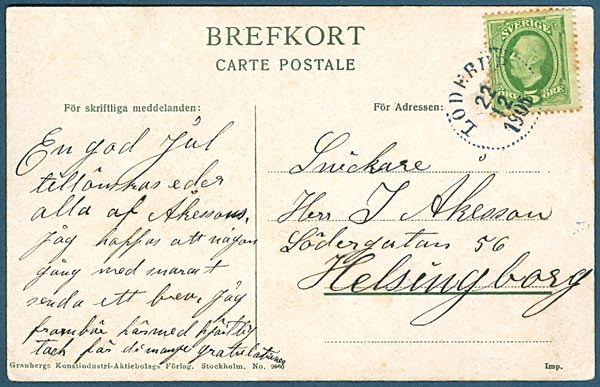 BREFKORT
CARTE POSTALE
SVERIGE
5 ÖRE
LÖDERUP
22
12
1906
För skriftliga meddelanden:
För Adressen:
En god Jul
tillönskas eder
alla af Åkessons.
Jag hoppas att någon
gång med snarast
sända ett brev. Jag
frambär härmed hjärtlig
tack för de många gratulationer
Snickare
Herr J Åkesson
Södergatan 56
Helsingborg
Granbergs Konstindustri-Aktiebolags Förlag. Stockholm. No.
Imp.